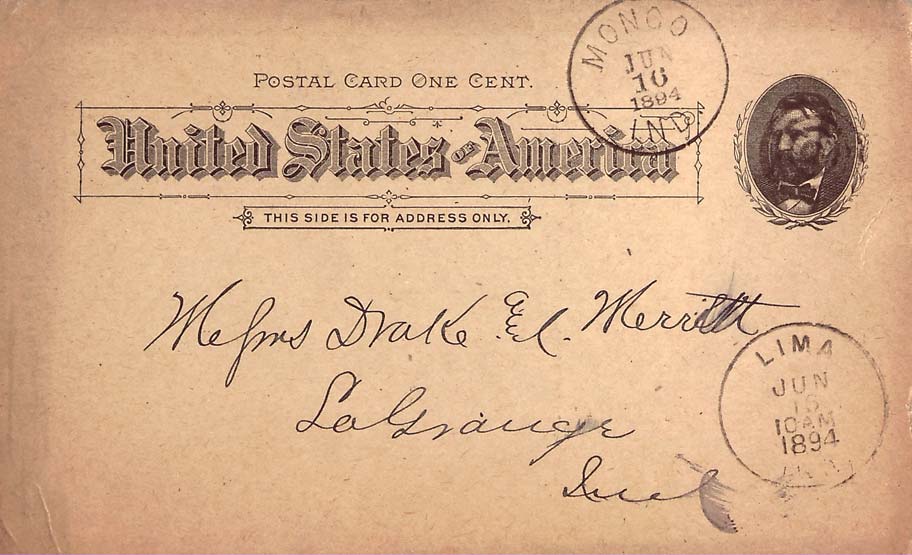 POSTAL CARD ONE CENT.
United States of America
THIS SIDE IS FOR ADDRESS ONLY.
MONGO
JUN
16
1894
IND
Messrs Drake & Merritt
LaGrange
Ind
LIMA
JUN
10AM
1894
IND